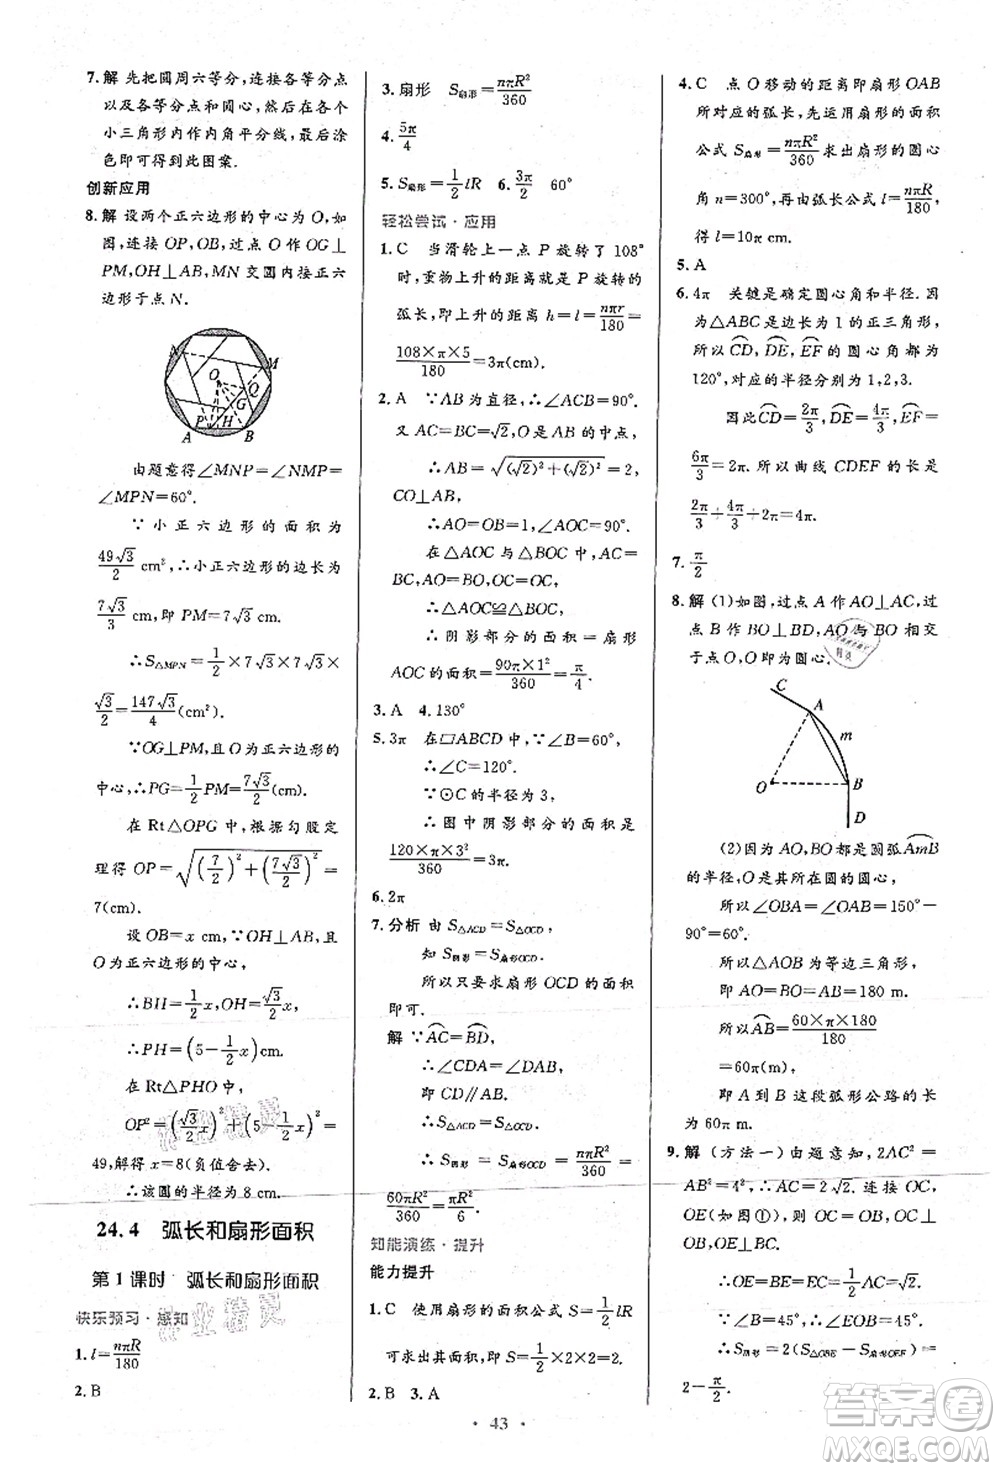 7.解 先把圆周六等分,连接各等分点
以及各等分点和圆心,然后在各个
小三角形内作内角平分线,最后涂
色即可得到此图案.
创新应用
8.解 设两个正六边形的中心为O,如
图,连接OP,OB,过点O作OG⊥
PM,OH⊥AB,MN交圆内接正六
边形于点N.
N M O Q G P H A B
由题意得∠MNP=∠NMP=
∠MPN=60°.
∵小正六边形的面积为
49√3/2 cm²,∴小正六边形的边长为
7√3/3 cm,即PM=7√3 cm.
∴S△MPN=1/2×7√3×7√3×
√3/2=147√3/4(cm²).
∵OG⊥PM,且O为正六边形的
中心,∴PG=1/2PM=7√3/2(cm).
在Rt△OPG中,根据勾股定
理得OP=√((7/2)²+(7√3/2)²)=
7(cm).
设OB=x cm,∵OH⊥AB,且O
为正六边形的中心,
∴BH=1/2x,OH=√3/2x,
∴PH=(5-1/2x)cm.
在Rt△PHO中,
OP²=(√3/2x)²+(5-1/2x)²=
49,解得x=8(负值舍去).
∴该圆的半径为8 cm.
24.4 弧长和扇形面积
第1课时 弧长和扇形面积
快乐预习·感知
1.l=nπR/180
2.B
3.扇形 S扇形=nπR²/360
4.5π/4
5.S扇形=1/2lR 6.3π/2 60°
轻松尝试·应用
1.C 当滑轮上一点P旋转了108°
时,重物上升的距离就是P旋转的
弧长,即上升的距离h=l=nπr/180=
108×π×5/180=3π(cm).
2.A ∵AB为直径,∴∠ACB=90°.
又AC=BC=√2,O是AB的中点,
∴AB=√((√2)²+(√2)²)=2,
CO⊥AB,
∴AO=OB=1,∠AOC=90°.
在△AOC与△BOC中,AC=
BC,AO=BO,OC=OC,
∴△AOC≌△BOC,
∴阴影部分的面积=扇形
AOC的面积=90π×1²/360=π/4.
3.A 4.130°
5.3π 在▱ABCD中,∵∠B=60°,
∴∠C=120°.
∵⊙C的半径为3,
∴图中阴影部分的面积是
120×π×3²/360=3π.
6.2π
7.分析 由S△ACD=S△OCD,
知S阴影=S扇形OCD.
所以只要求扇形OCD的面积
即可.
解 ∵AC=BD,
∴∠CDA=∠DAB,
即CD∥AB,
∴S△ACD=S△OCD,
∴S阴影=S扇形OCD=nπR²/360=
60πR²/360=πR²/6.
知能演练·提升
能力提升
1.C 使用扇形的面积公式S=1/2lR
可求出其面积,即S=1/2×2×2=2.
2.B 3.A
4.C 点O移动的距离即扇形OAB
所对应的弧长,先运用扇形的面积
公式S扇形=nπR²/360求出扇形的圆心
角n=300°,再由弧长公式l=nπR/180
得l=10π cm.
5.A
6.4π 关键是确定圆心角和半径.因
为△ABC是边长为1的正三角形,
所以CD,DE,EF的圆心角都是
120°,对应的半径分别为1,2,3.
因此CD=2π/3,DE=4π/3,EF=
6π/3=2π.所以曲线CDEF的长是
2π/3+4π/3+2π=4π.
7.π/2
8.解 (1)如图,过点A作AO⊥AC,过
点B作BO⊥BD,AO与BO相交
于点O,O即为圆心.
C A m O B D
(2)因为AO,BO都是圆弧AmB
的半径,O是其所在圆的圆心,
所以∠OBA=∠OAB=150°-
90°=60°.
所以△AOB为等边三角形,
即AO=BO=AB=180 m.
所以AB=60×π×180/180
=60π(m).
即A到B这段弧形公路的长
为60π m.
9.解 (方法一)由题意知,2AC²=
AB²=4²,∴AC=2√2.连接OC,
OE(如图①),则OC⊥AB,
OE⊥BC.
∴OE=BE=1/2BC=√2.
∵∠B=45°,∴∠EOF=45°,
∴S阴影=2(S△OBE-S扇形OEF)=
2-π/2.
· 43 ·
答案圈
MXQE.COM